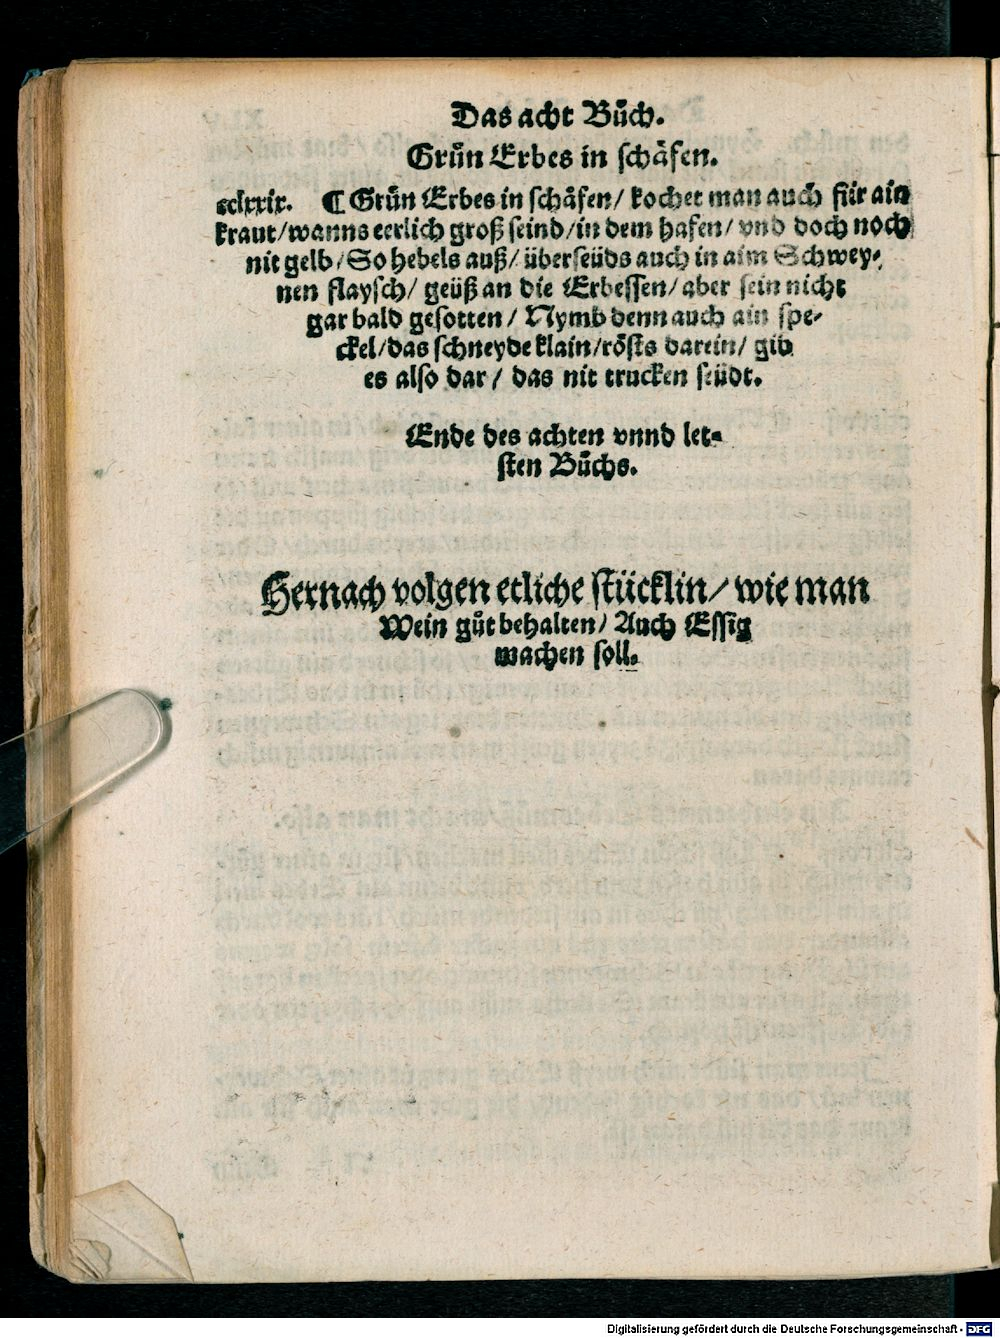 Das acht Bůch.
Grün Erbes in schäfen.
cclxxix. ¶ Grün Erbes in schäfen/ kochet man auch für ain
kraut/wanns eerlich groß seind/in dem hafen/ vnd doch noch
nit gelb/So hebels auß/ überseüds auch in aim Schwey-
nen flaysch/ geüß an die Erbessen/ aber sein nicht
gar bald gesotten/ Nymb denn auch ain spe-
ckel/das schneyde klain/rösts darein/ gib
es also dar/ das nit trucken seüdt.
Ende des achten vnnd let-
sten Bůchs.
Hernach volgen etliche stücklin/ wie man
Wein gůt behalten/ Auch Essig
machen soll.
Digitalisierung gefördert durch die Deutsche Forschungsgemeinschaft - DFG